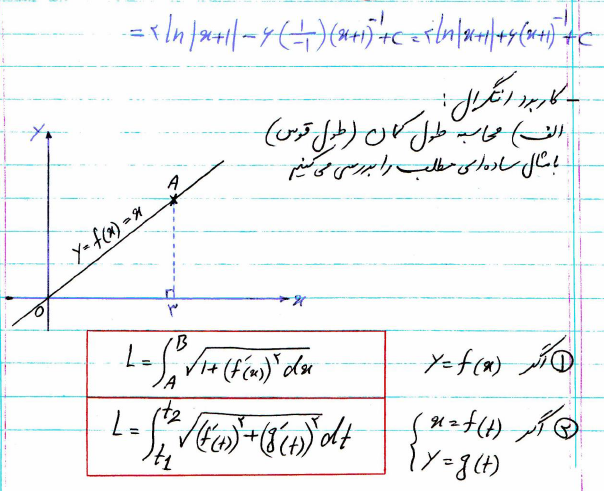 = ۲ ln |x+1| - ۶ (1/-1) (x+1)⁻¹ + C = ۲ ln |x+1| + ۶ (x+1)⁻¹ + C
- کاربرد انتگرال :
الف) محاسبه طول کمان (طول قوس)
با مثال ساده‌ای مطلب را بررسی می‌کنیم
y
A
y = f(x) = x
O
۳
x
① اگر y = f(x)
L = ∫_A^B √(1 + (f′(x))^۲) dx
② اگر { x = f(t)
y = g(t)
L = ∫_t1^t2 √((f′(t))^۲ + (g′(t))^۲) dt